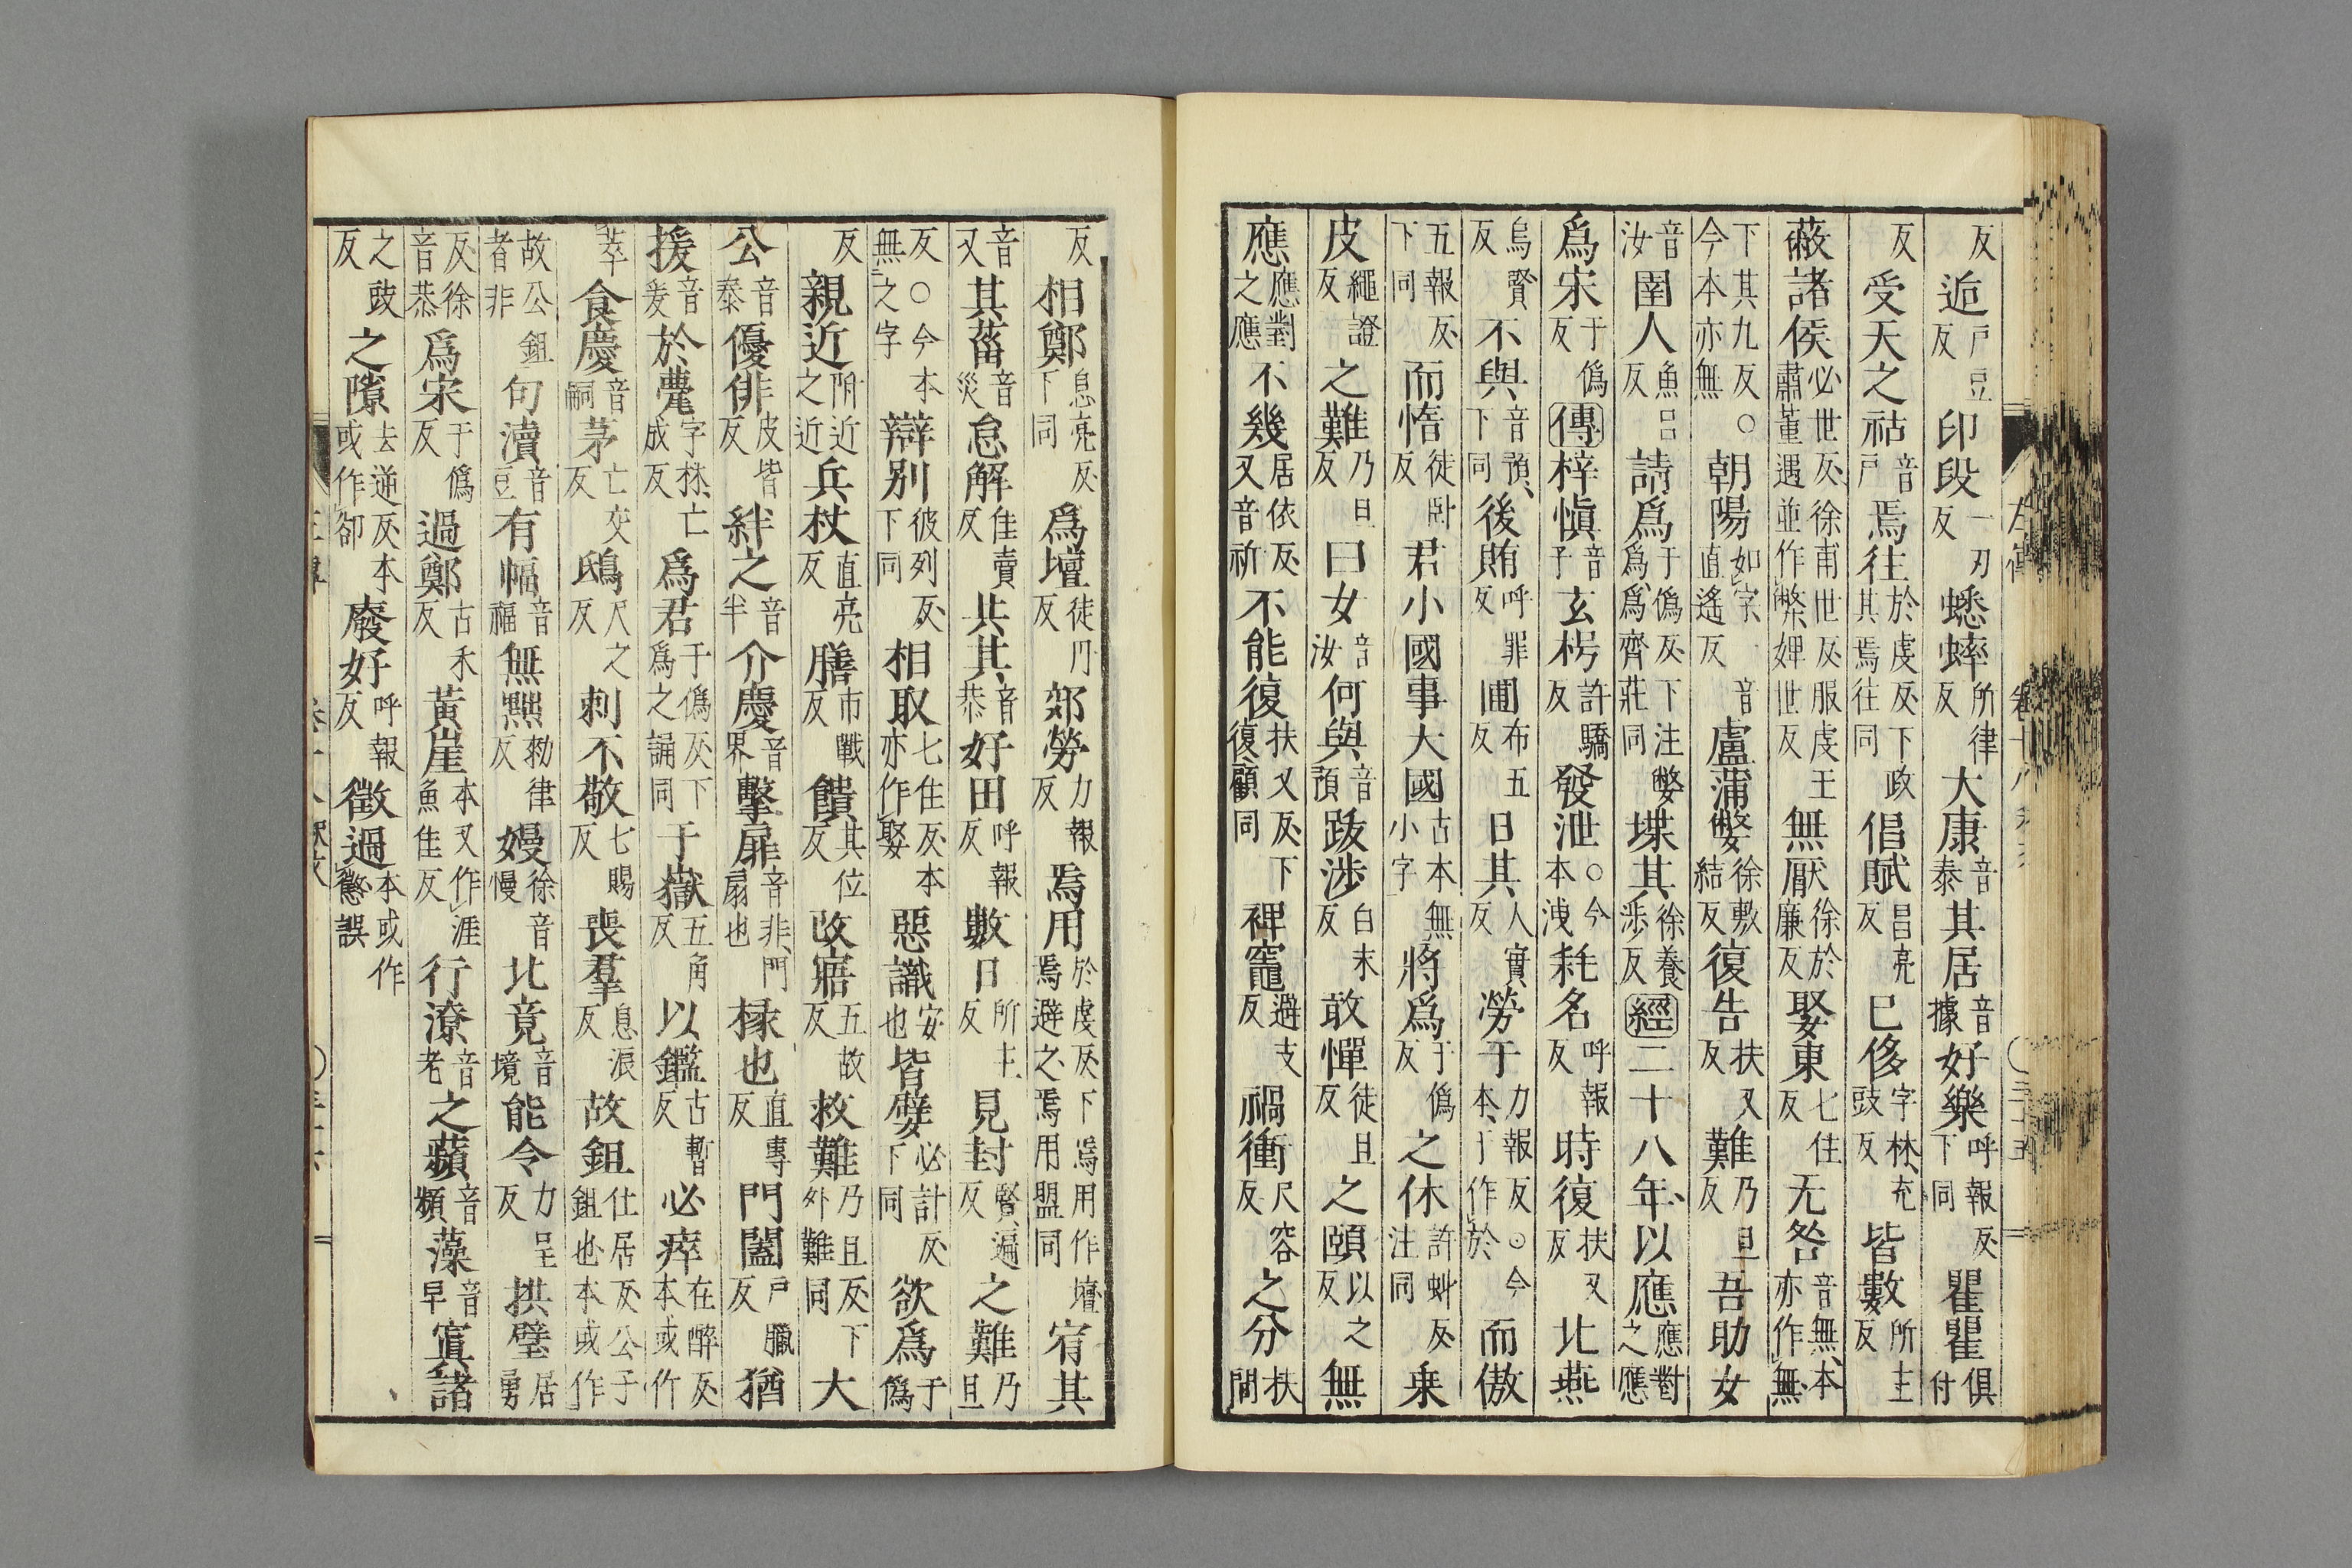 反近戶豆反印段一刃反蟋蟀所律反大康音泰其居音據好樂呼報反下同瞿瞿俱付
反受天之祜音戶焉往於虔反下政其焉往同倡賦昌亮反已侈字林充豉反皆數所主反
蔽諸侯必世反徐甫世反服虔王肅董遇並作弊婢世反無厭徐於廉反娶東七住反无咎音無本亦作無
下其九反○今本亦無朝陽如字一音直遙反盧蒲嫳徐敷結反復告扶又反難乃旦反吾助女
音汝圉人魚呂反請為于偽反下注嫳為為齊莊同堞其徐養涉反經二十八年以應應對之應
為宋于偽反傳梓慎音子玄枵許驕反發泄○今本洩耗名呼報反時復扶又反北燕
烏賢反不與音預下同後賄呼罪反圃布五反日其人實反勞于力報反○今本于作於而傲
五報反下同而惰徒臥反君小國事大國古本無小字將為于偽反之休許虯反注同乗
皮繩證反之難乃旦反曰女音汝何與音預跋涉白末反敢憚徒旦反之頤以之反無
應應對之應不幾居依反又音祈不能復扶又反下復顧同裨竈避支反禍衝尺容反之分扶問
反相鄭息亮反下同為壇徒丹反郊勞力報反焉用於虔反下焉用作壇焉避之焉用盟同宥其
音又其菑音災怠解佳賣反共其音恭好田呼報反數日所主反見封賢遍反之難乃旦
反○今本無之字辯別彼列反下同相取七住反本亦作娶惡識安也皆嬖必計反下同欲為于偽
反親近附近之近兵杖直亮反膳市戰反饋其位反改寤五故反救難乃旦反下外難同大
公音泰優俳皮皆反絆之音半介慶音界擊扉音非門扇也椽也直專反門闔戶臘反猶
援音爰於甍字林亡成反為君于偽反下為之誦同于嶽五角反以鑑古暫反必瘁在醉反本或作
萃食慶音嗣茅亡交反鴟尺之反刺不敬七賜反喪羣息浪反故鉏仕居反公子鉏也本或作
故公鉏者非句瀆音豆有幅音福無黜勑律反嫚徐音慢北竟音境能令力呈反拱璧居勇
反徐音恭為宋于偽反過鄭古禾反黃崖本又作涯魚佳反行潦音老之蘋音頻藻音早寘諸
之豉反之隙去逆反本或作卻廢好呼報反徵過本或作懲誤